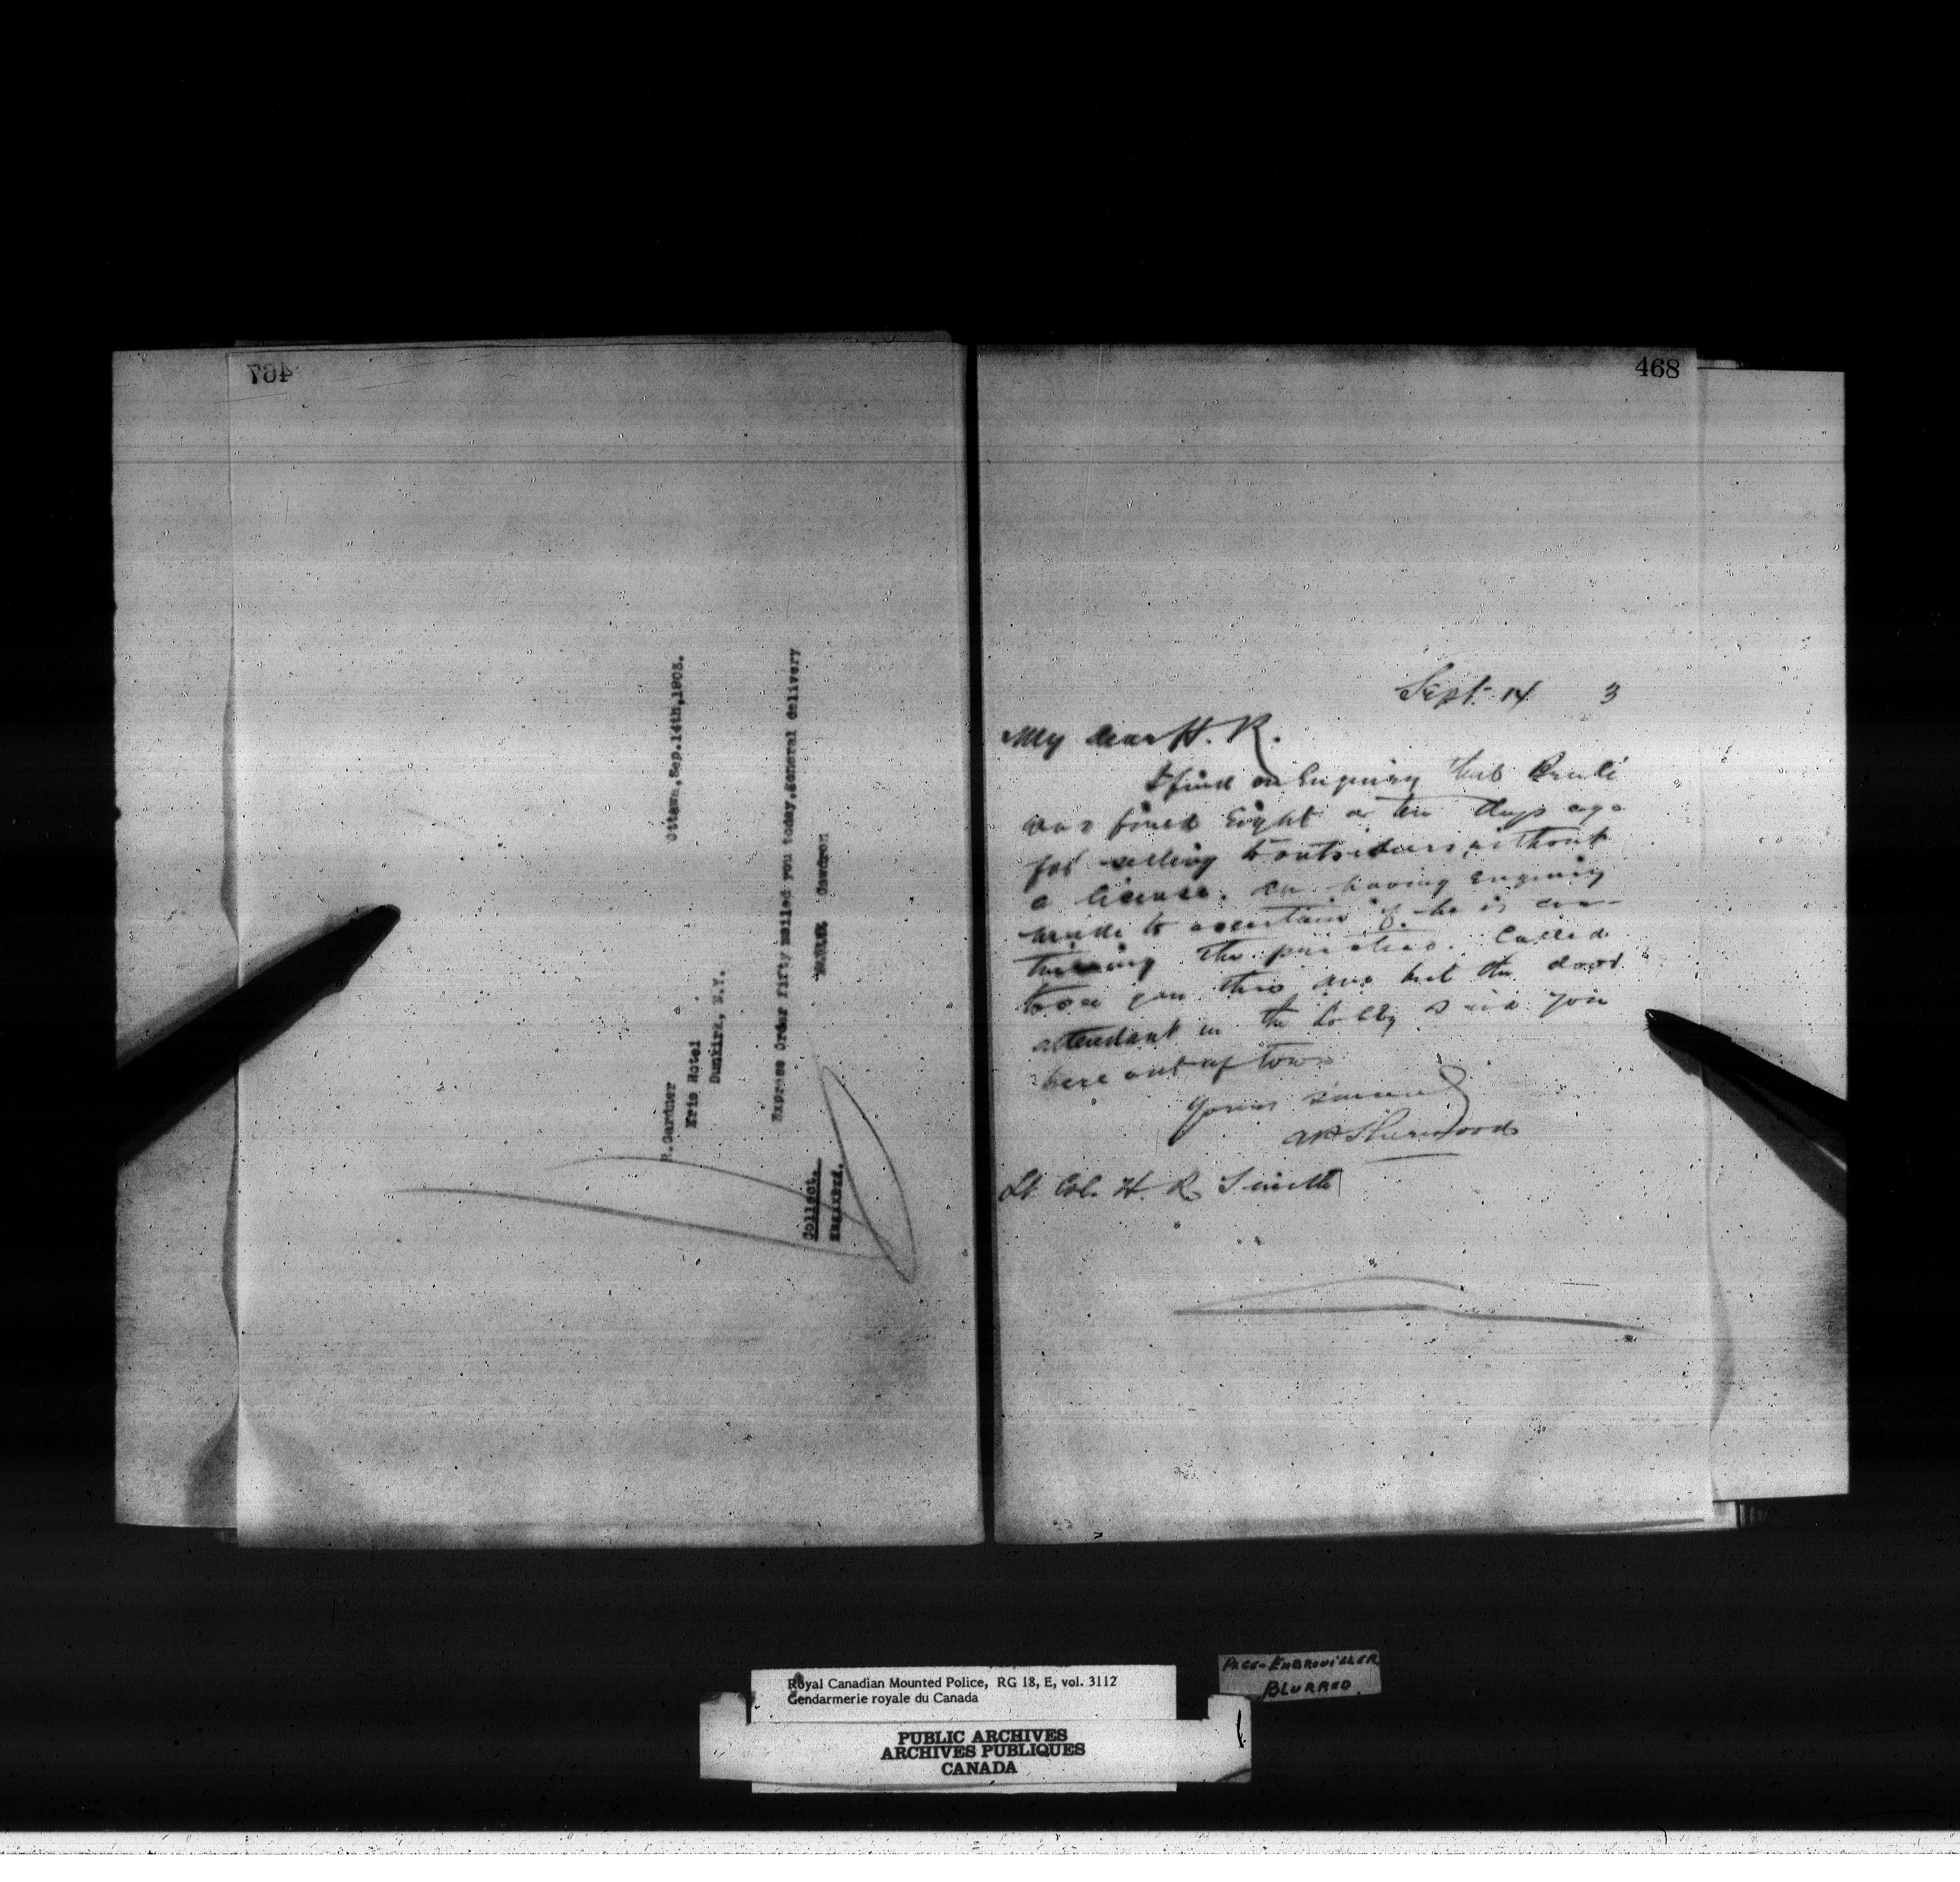 467
Ottawa,Sep.14th,1903.
R.Gardner
Erie Hotel
Dunkirk, N.Y.
Express Order Fifty mailed you today,general delivery
Gendron
Collect.
468
Sept. 14 3
My dear H. R.
I find on Enquiry that
was fined Eight or ten days ago
for selling to outsiders without
a license. Am having enquiry
made to ascertain if he is con-
tinuing the practice. Called
to see you this but the door
attendant in the Lobby said you
were out of town
Yours sincerely
AP Sherwood
Lt. Col. H. R. Smith
Royal Canadian Mounted Police, RG 18, E, vol. 3112
Gendarmerie royale du Canada
PAGE-EMBROUILLER
BLURRED
PUBLIC ARCHIVES
ARCHIVES PUBLIQUES
CANADA